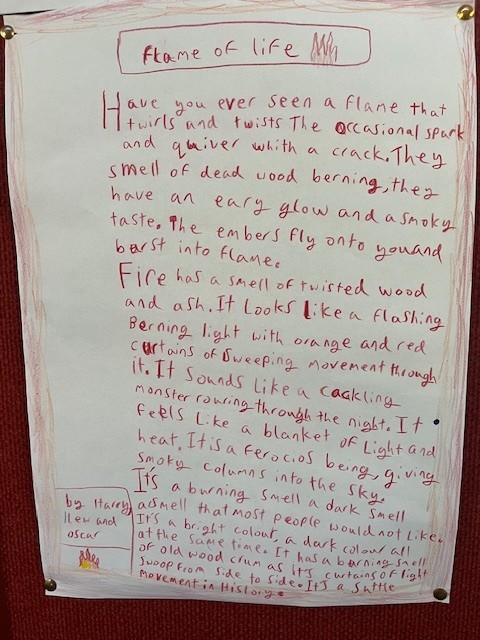 flame of life
Have you ever seen a flame that
twirls and twists The occasional spark
and quiver whith a crack. They
smell of dead wood berning, they
have an eary glow and a smoky
taste. The embers fly onto you and
berst into flame.
Fire has a smell of twisted wood
and ash. It Looks Like a flashing
Berning light with orange and red
curtains of Sweeping movement through
it. It sounds Like a cackling
monster rouring through the night. It
feels Like a blanket of Light and
heat. It is a ferocios being, giving
smoky columns into the sky.
It's a burning smell a dark smell
a smell that most people would not like.
It's a bright colour, a dark colour all
at the same time. It has a berning smell
of old wood crum as it's curtains of light
swoop from side to side. It's a suttle
movement in History.
by Harry
llew and
oscar